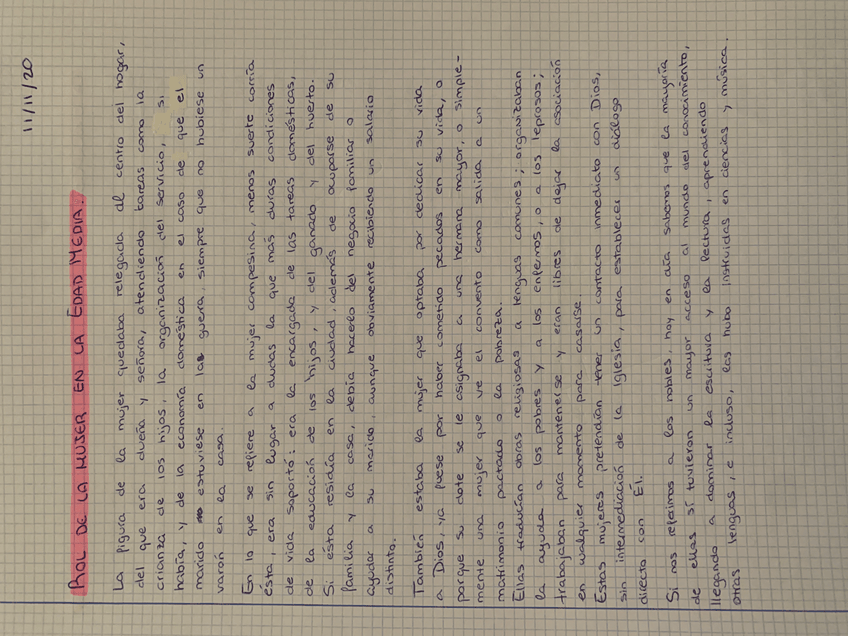 11/11/20
ROL DE LA MUJER EN LA EDAD MEDIA.
La figura de la mujer quedaba relegada al centro del hogar,
del que era dueña y señora, atendiendo tareas como la
crianza de los hijos, la organización del servicio, si
había, y de la economía doméstica en el caso de que el
marido estuviese en la guerra, siempre que no hubiese un
varón en la casa.
En lo que se refiere a la mujer campesina, menos suerte corría
ésta, era sin lugar a dudas la que más duras condiciones
de vida soportó: era la encargada de las tareas domésticas,
de la educación de los hijos, y del ganado y del huerto.
Si esta residía en la ciudad, además de ocuparse de su
familia y la casa, debía hacerlo del negocio familiar o
ayudar a su marido, aunque obviamente recibiendo un salario
distinto.
También estaba la mujer que optaba por dedicar su vida
a Dios, ya fuese por haber cometido pecados en su vida, o
porque su dote se le asignaba a una hermana mayor, o simple-
mente una mujer que ve el convento como salida a un
matrimonio pactado o la pobreza.
Ellas traducían obras religiosas a lenguas comunes; organizaban
la ayuda a los pobres y a los enfermos, o a los leprosos;
trabajaban para mantenerse y eran libres de dejar la asociación
en cualquier momento para casarse.
Estas mujeres pretendían tener un contacto inmediato con Dios,
sin intermediación de la Iglesia, para establecer un diálogo
directo con Él.
Si nos referimos a las nobles, hoy en día sabemos que la mayoría
de ellas sí tuvieron un mayor acceso al mundo del conocimiento,
llegando a dominar la escritura y la lectura, aprendiendo
otras lenguas, e incluso, las hubo instruidas en ciencias y música.